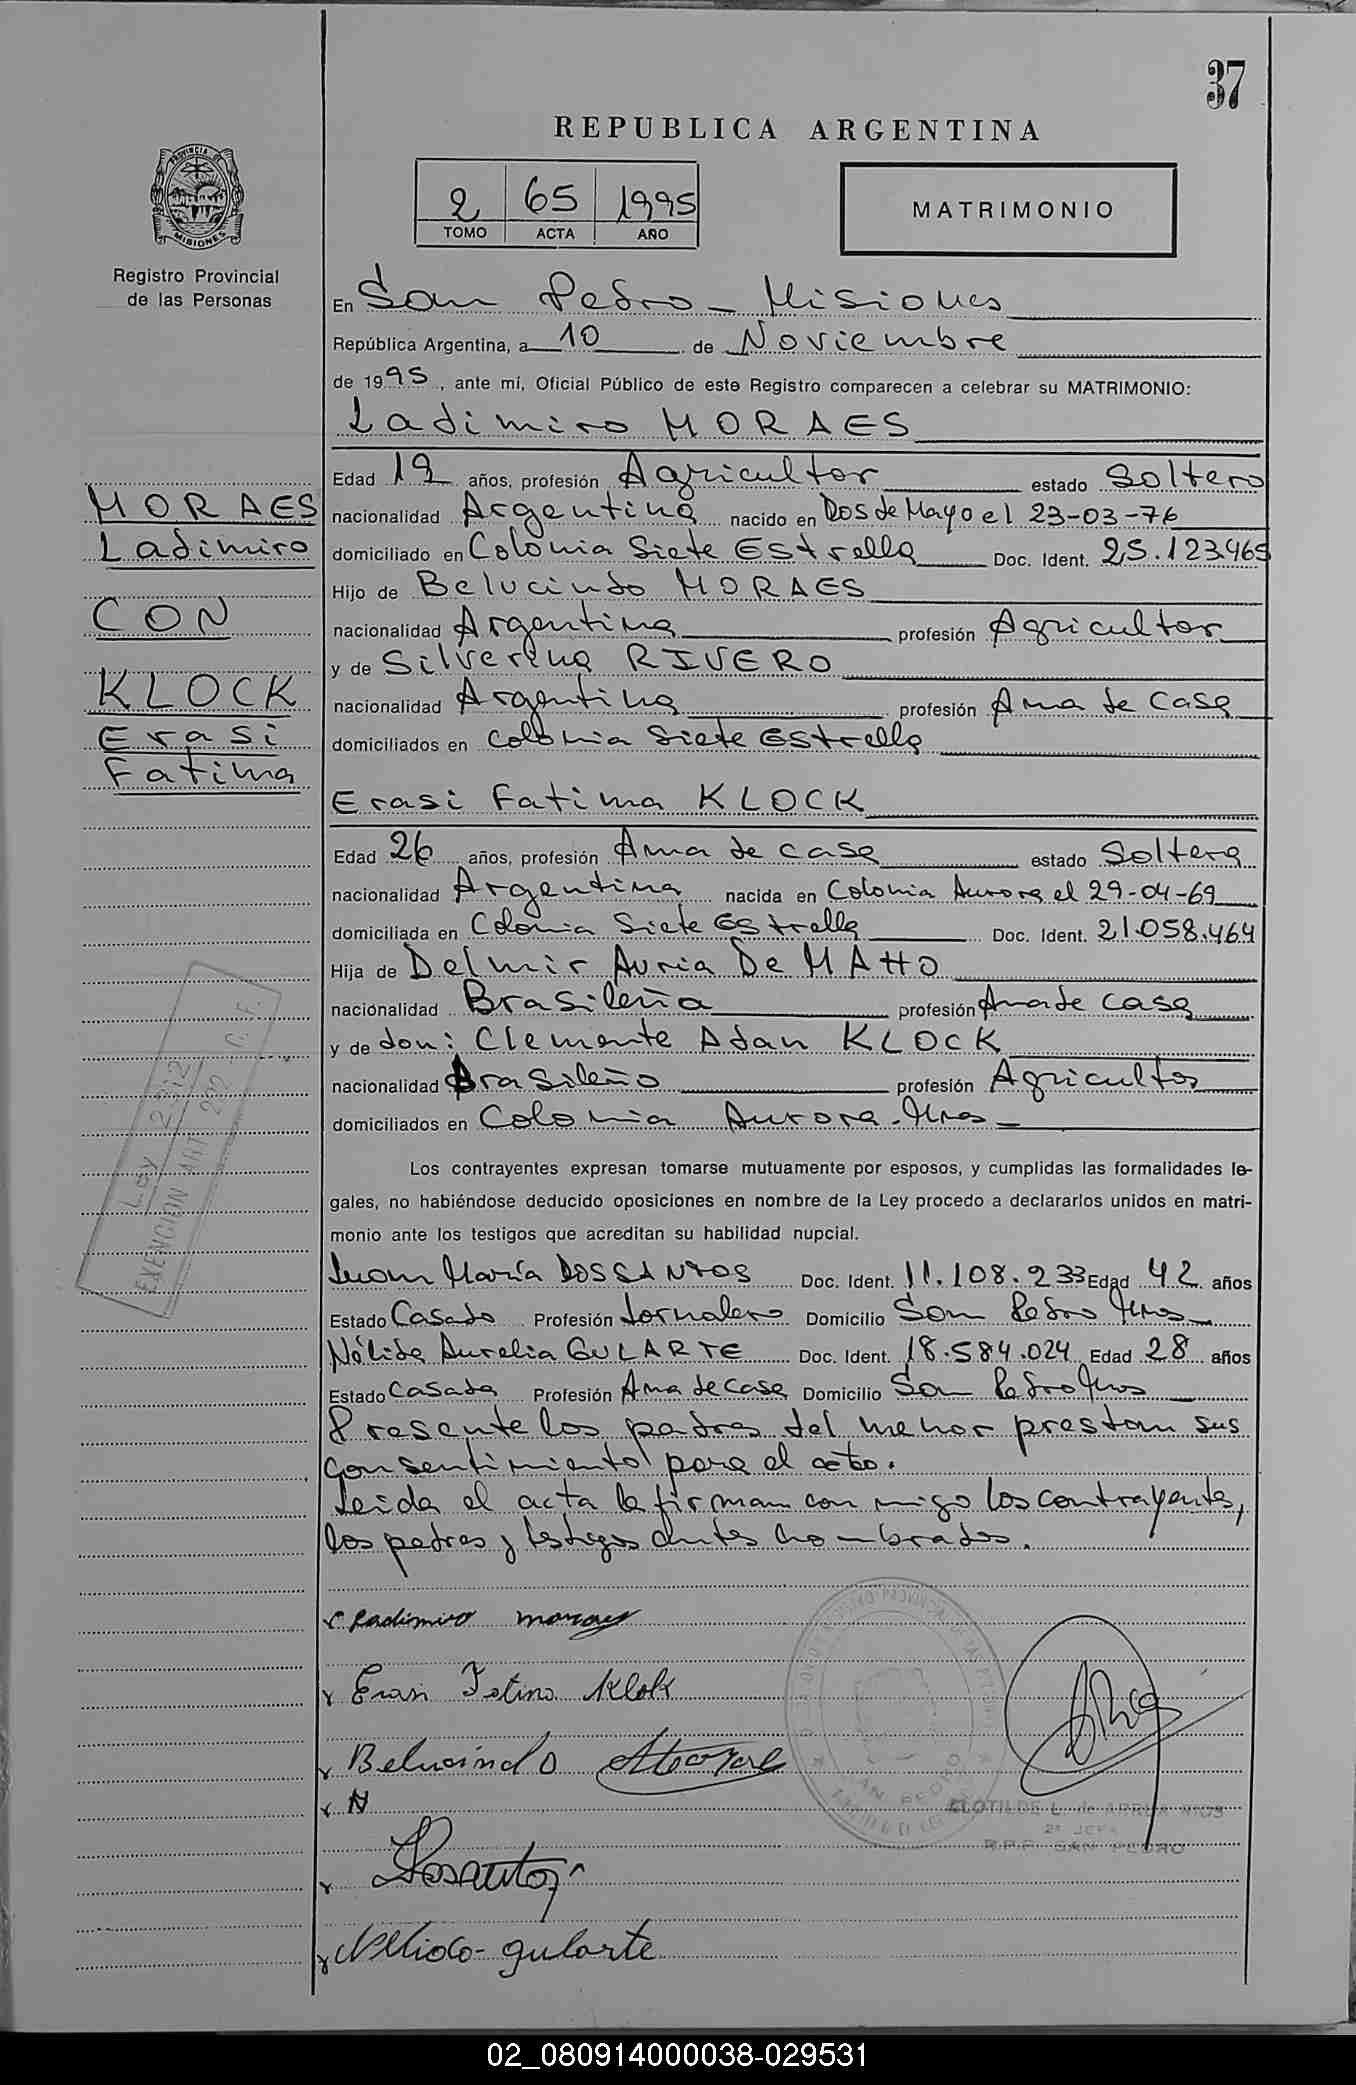 37
REPUBLICA ARGENTINA
PROVINCIA DE
MISIONES
Registro Provincial
de las Personas
2 65 1995
TOMO ACTA AÑO
MATRIMONIO
En San Pedro - Misiones
República Argentina, a 10 de Noviembre
de 1995, ante mí, Oficial Público de este Registro comparecen a celebrar su MATRIMONIO:
Ladimiro MORAES
Edad 19 años, profesión Agricultor estado Soltero
nacionalidad Argentina nacido en Dos de Mayo el 23-03-76
domiciliado en Colonia Siete Estrella Doc. Ident. 25.123465
Hijo de Belucindo MORAES
nacionalidad Argentina profesión Agricultor
y de Silverina RIVERO
nacionalidad Argentina profesión Ama de Casa
domiciliados en Colonia Siete Estrella
MORAES
Ladimiro
CON
KLOCK
Erasi
Fatima
Erasi Fatima KLOCK
Edad 26 años, profesión Ama de casa estado Soltera
nacionalidad Argentina nacida en Colonia Aurora el 29-04-69
domiciliada en Colonia Siete Estrella Doc. Ident. 21.058.464
Hija de Delmir Auria De MAttO
nacionalidad Brasileña profesión Ama de casa
y de don: Clemente Adan KLOCK
nacionalidad Brasileño profesión Agricultor
domiciliados en Colonia Aurora - Mnes
Ley 2312
EXENCION ART 292 C. F.
Los contrayentes expresan tomarse mutuamente por esposos, y cumplidas las formalidades le-
gales, no habiéndose deducido oposiciones en nombre de la Ley procedo a declararlos unidos en matri-
monio ante los testigos que acreditan su habilidad nupcial.
Juan María DOSSANTOS Doc. Ident. 11.108.233 Edad 42 años
Estado Casado Profesión Jornalero Domicilio San Pedro Mnes
Nélida Aurelia GULARTE Doc. Ident. 18.584.024 Edad 28 años
Estado Casada Profesión Ama de Casa Domicilio San Pedro Mnes
Presente los padres del menor prestan sus
consentimiento para el acto.
Leida el acta la firman con migo los contrayentes,
los padres y testigos antes nombrados.
Ladimiro moraes
Erasi Fatima Klok
Belucindo
SAN PEDRO
CLOTILDE L. de ARRUA RIOS
2ª JEFA
R.P.P. SAN PEDRO
Dosantos
Nelida gularte
02_080914000038-029531